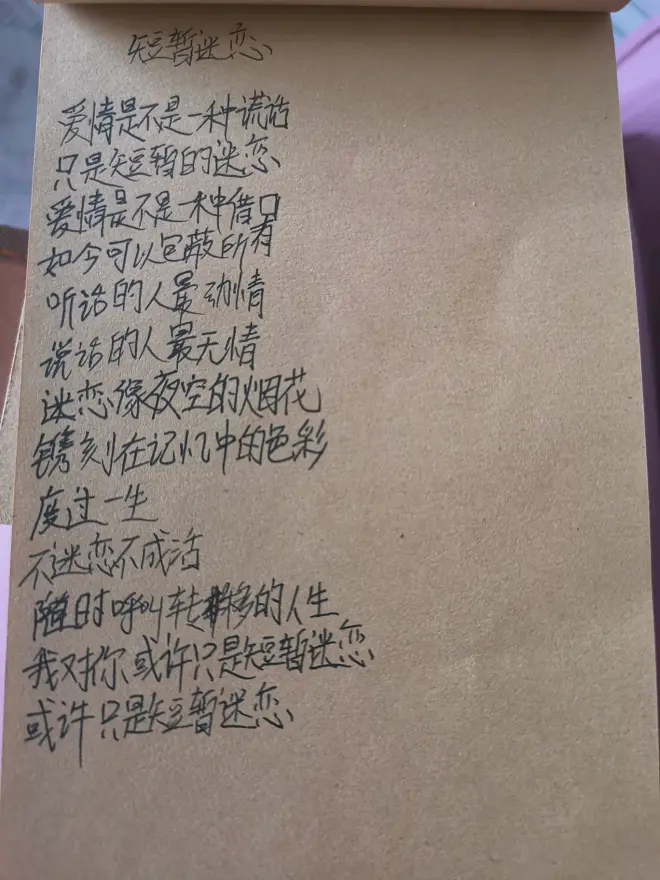 短暂迷恋
爱情是不是一种谎话
只是短暂的迷恋
爱情是不是一种借口
如今可以包蔽所有
听话的人最动情
说话的人最无情
迷恋像夜空的烟花
镌刻在记忆中的色彩
度过一生
不迷恋不成活
随时呼叫转移的人生
我对你或许只是短暂迷恋
或许只是短暂迷恋